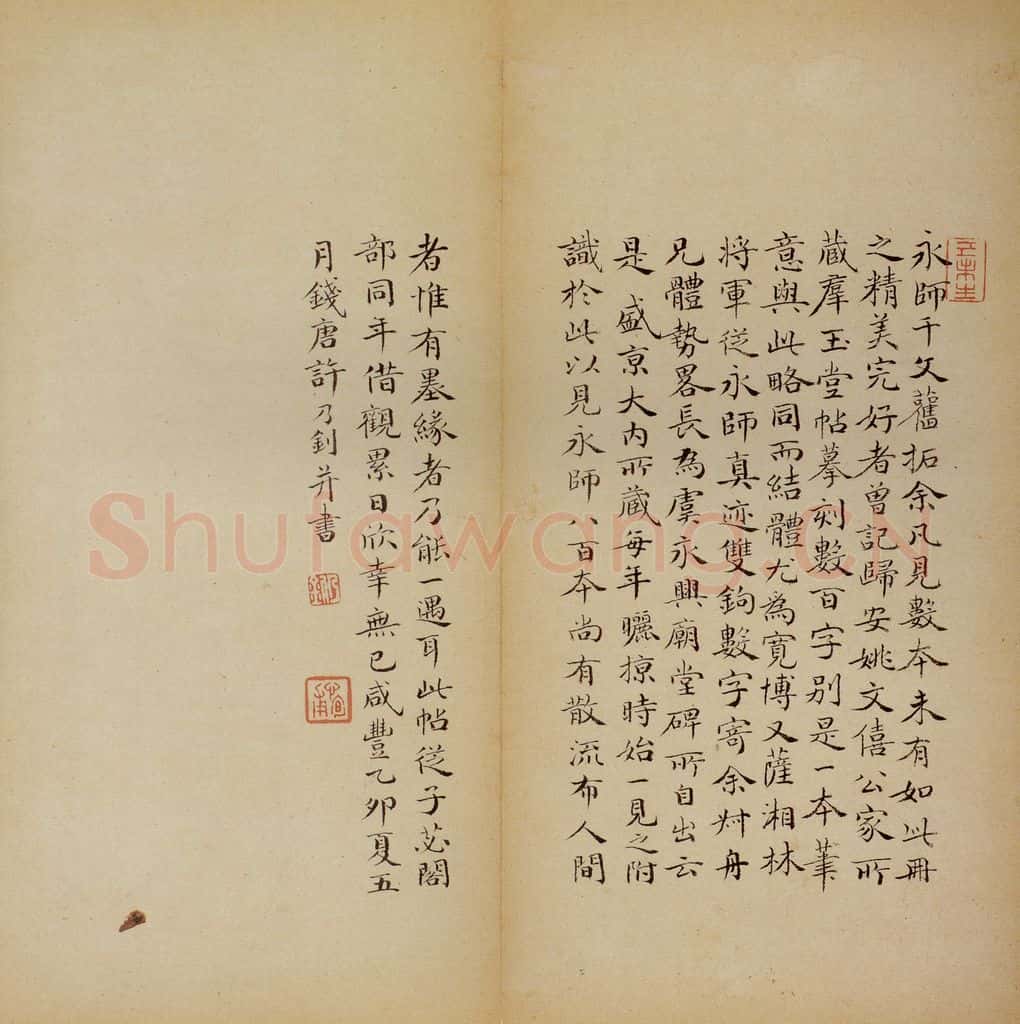 永師千文舊拓余凡見數本未有如此冊
之精美完好者曾記歸安姚文僖公家所
藏羣玉堂帖摹刻數百字別是一本筆
意與此略同而結體尤為寬博又薩湘林
將軍從永師真迹雙鉤數字寄余艸舟
兄體勢畧長為虞永興廟堂碑所自出云
是 盛京大內所藏每年曬掠時始一見之附
識於此以見永師八百本尚有散流布人間
者惟有墨緣者乃能一遇耳此帖從子苾閣
部同年借觀累日欣幸無已咸豐乙卯夏五
月錢唐許乃釗并書
Shufawang.CN